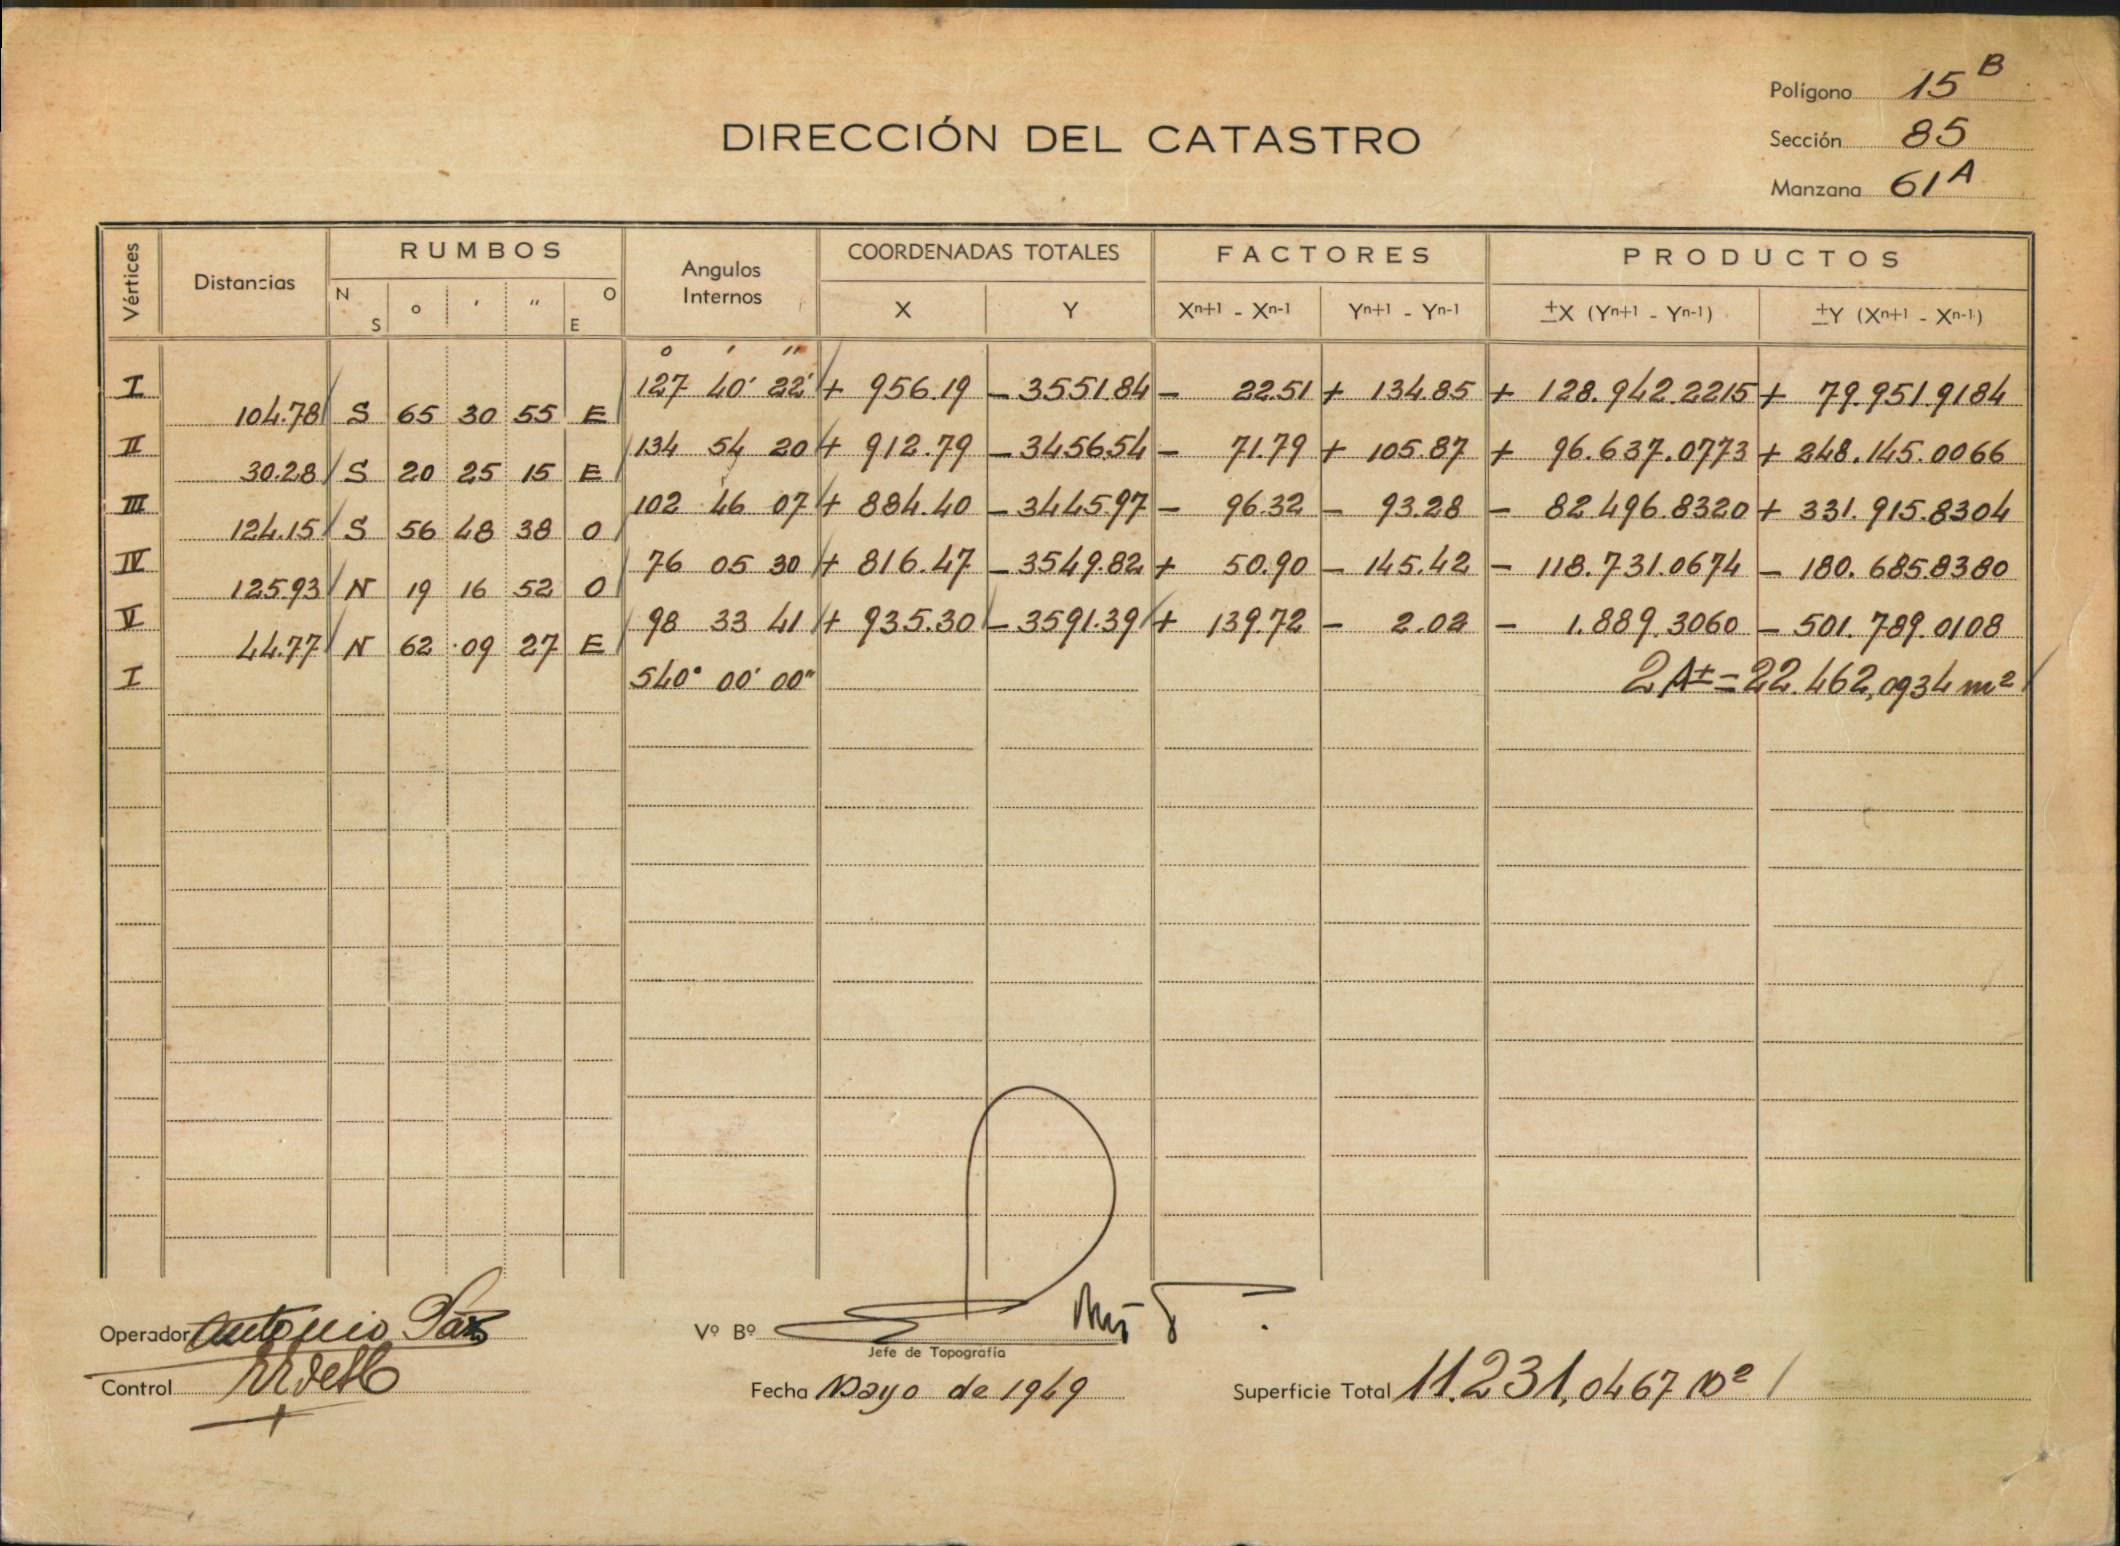 Polígono 15 B
DIRECCIÓN DEL CATASTRO
Sección 85
Manzana 61 A
Vértices Distancias RUMBOS Angulos Internos COORDENADAS TOTALES FACTORES PRODUCTOS
N S ° ' " O E X Y Xn+1 - Xn-1 Yn+1 - Yn-1 ±X (Yn+1 - Yn-1) ±Y (Xn+1 - Xn-1)
° ' "
I 127 40' 22" + 956.19 - 3551.84 - 22.51 + 134.85 + 128.942.2215 + 79.951.9184
104.78 S 65 30 55 E
II 134 54 20 + 912.79 - 3456.54 - 71.79 + 105.87 + 96.637.0773 + 248.145.0066
30.28 S 20 25 15 E
III 102 46 07 + 884.40 - 3445.97 - 96.32 - 93.28 - 82.496.8320 + 331.915.8304
124.15 S 56 48 38 O
IV 76 05 30 + 816.47 - 3549.82 + 50.90 - 145.42 - 118.731.0674 - 180.685.8380
125.93 N 19 16 52 O
V 98 33 41 + 935.30 - 3591.39 + 139.72 - 2.02 - 1.889.3060 - 501.789.0108
44.77 N 62 09 27 E
I 540° 00' 00" 2A± = 22.462,0934 m²
Operador Antonio Paz
Vº Bº
Jefe de Topografía
Control
Fecha Mayo de 1949
Superficie Total 11.231,0467 m²